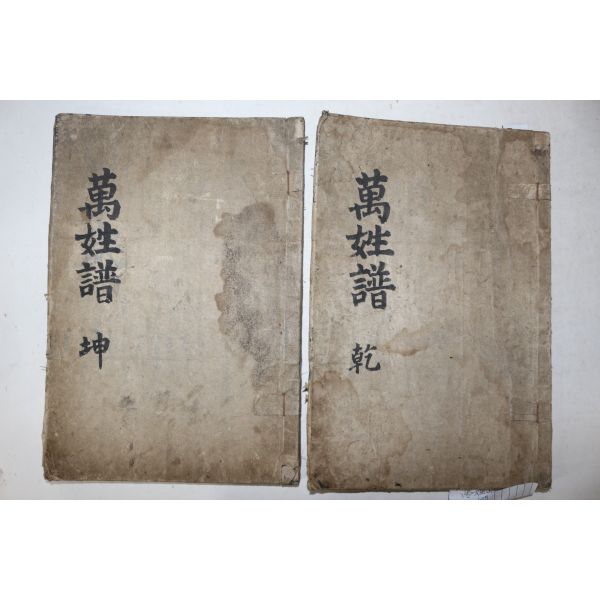 萬姓譜 乾
萬姓譜 坤